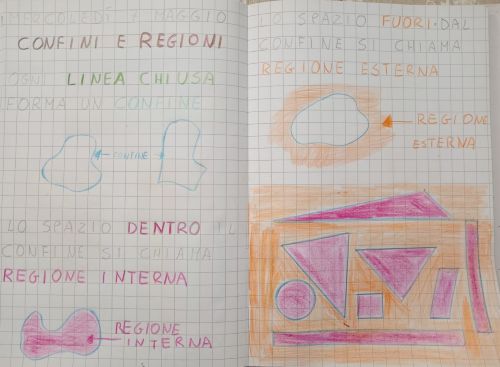 MERCOLEDÌ 7 MAGGIO
CONFINI E REGIONI
OGNI LINEA CHIUSA
FORMA UN CONFINE
CONFINE
LO SPAZIO DENTRO IL
CONFINE SI CHIAMA
REGIONE INTERNA
REGIONE
INTERNA
LO SPAZIO FUORI DAL
CONFINE SI CHIAMA
REGIONE ESTERNA
REGIONE
ESTERNA